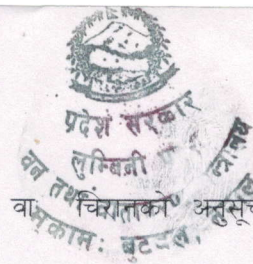 प्रदेश सरकार
लुम्बिनी
वन तथा
वा चिरानको अनुसूच
मुकामः बुटवल,